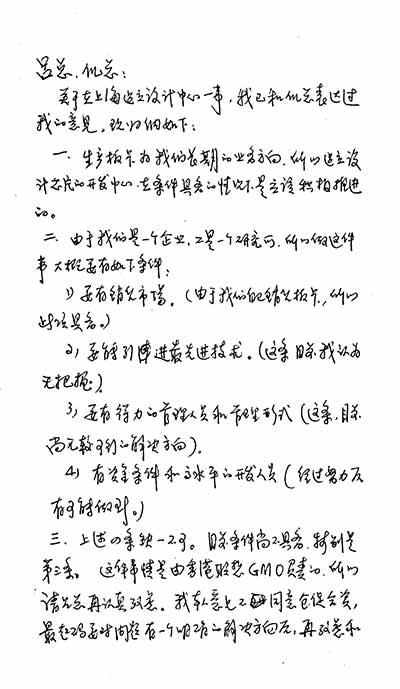 吕总、倪总：
关于在上海建立设计中心一事，我已和倪总表达过
我的意见，现归纳如下：
一、生产板卡为我们长期的业务方向，所以建立设
计芯片的开发中心，在条件具备的情况下是应该积极推进
的。
二、由于我们是一个企业，不是一个研究所，所以做这件
事大概要有如下条件：
1）要有销售市场。（由于我们自己销售板卡，所以
此项具备。）
2）要能引进最先进技术。（这条目前我认为
无把握；）
3）要有得力的管理人员和管理形式（这条，目前
尚无较可行的解决方向）。
4）有资金条件和高水平的开发人员（经过努力后
有可能做到。）
三、上述四条缺一不可。目前条件尚不具备，特别是
第三条。这件事情是由香港联想GMO负责的，所以
请吕总再认真考虑。我本人意见不同意仓促合资，
最起码要对问题有一个明确的解决方向后，再考虑和